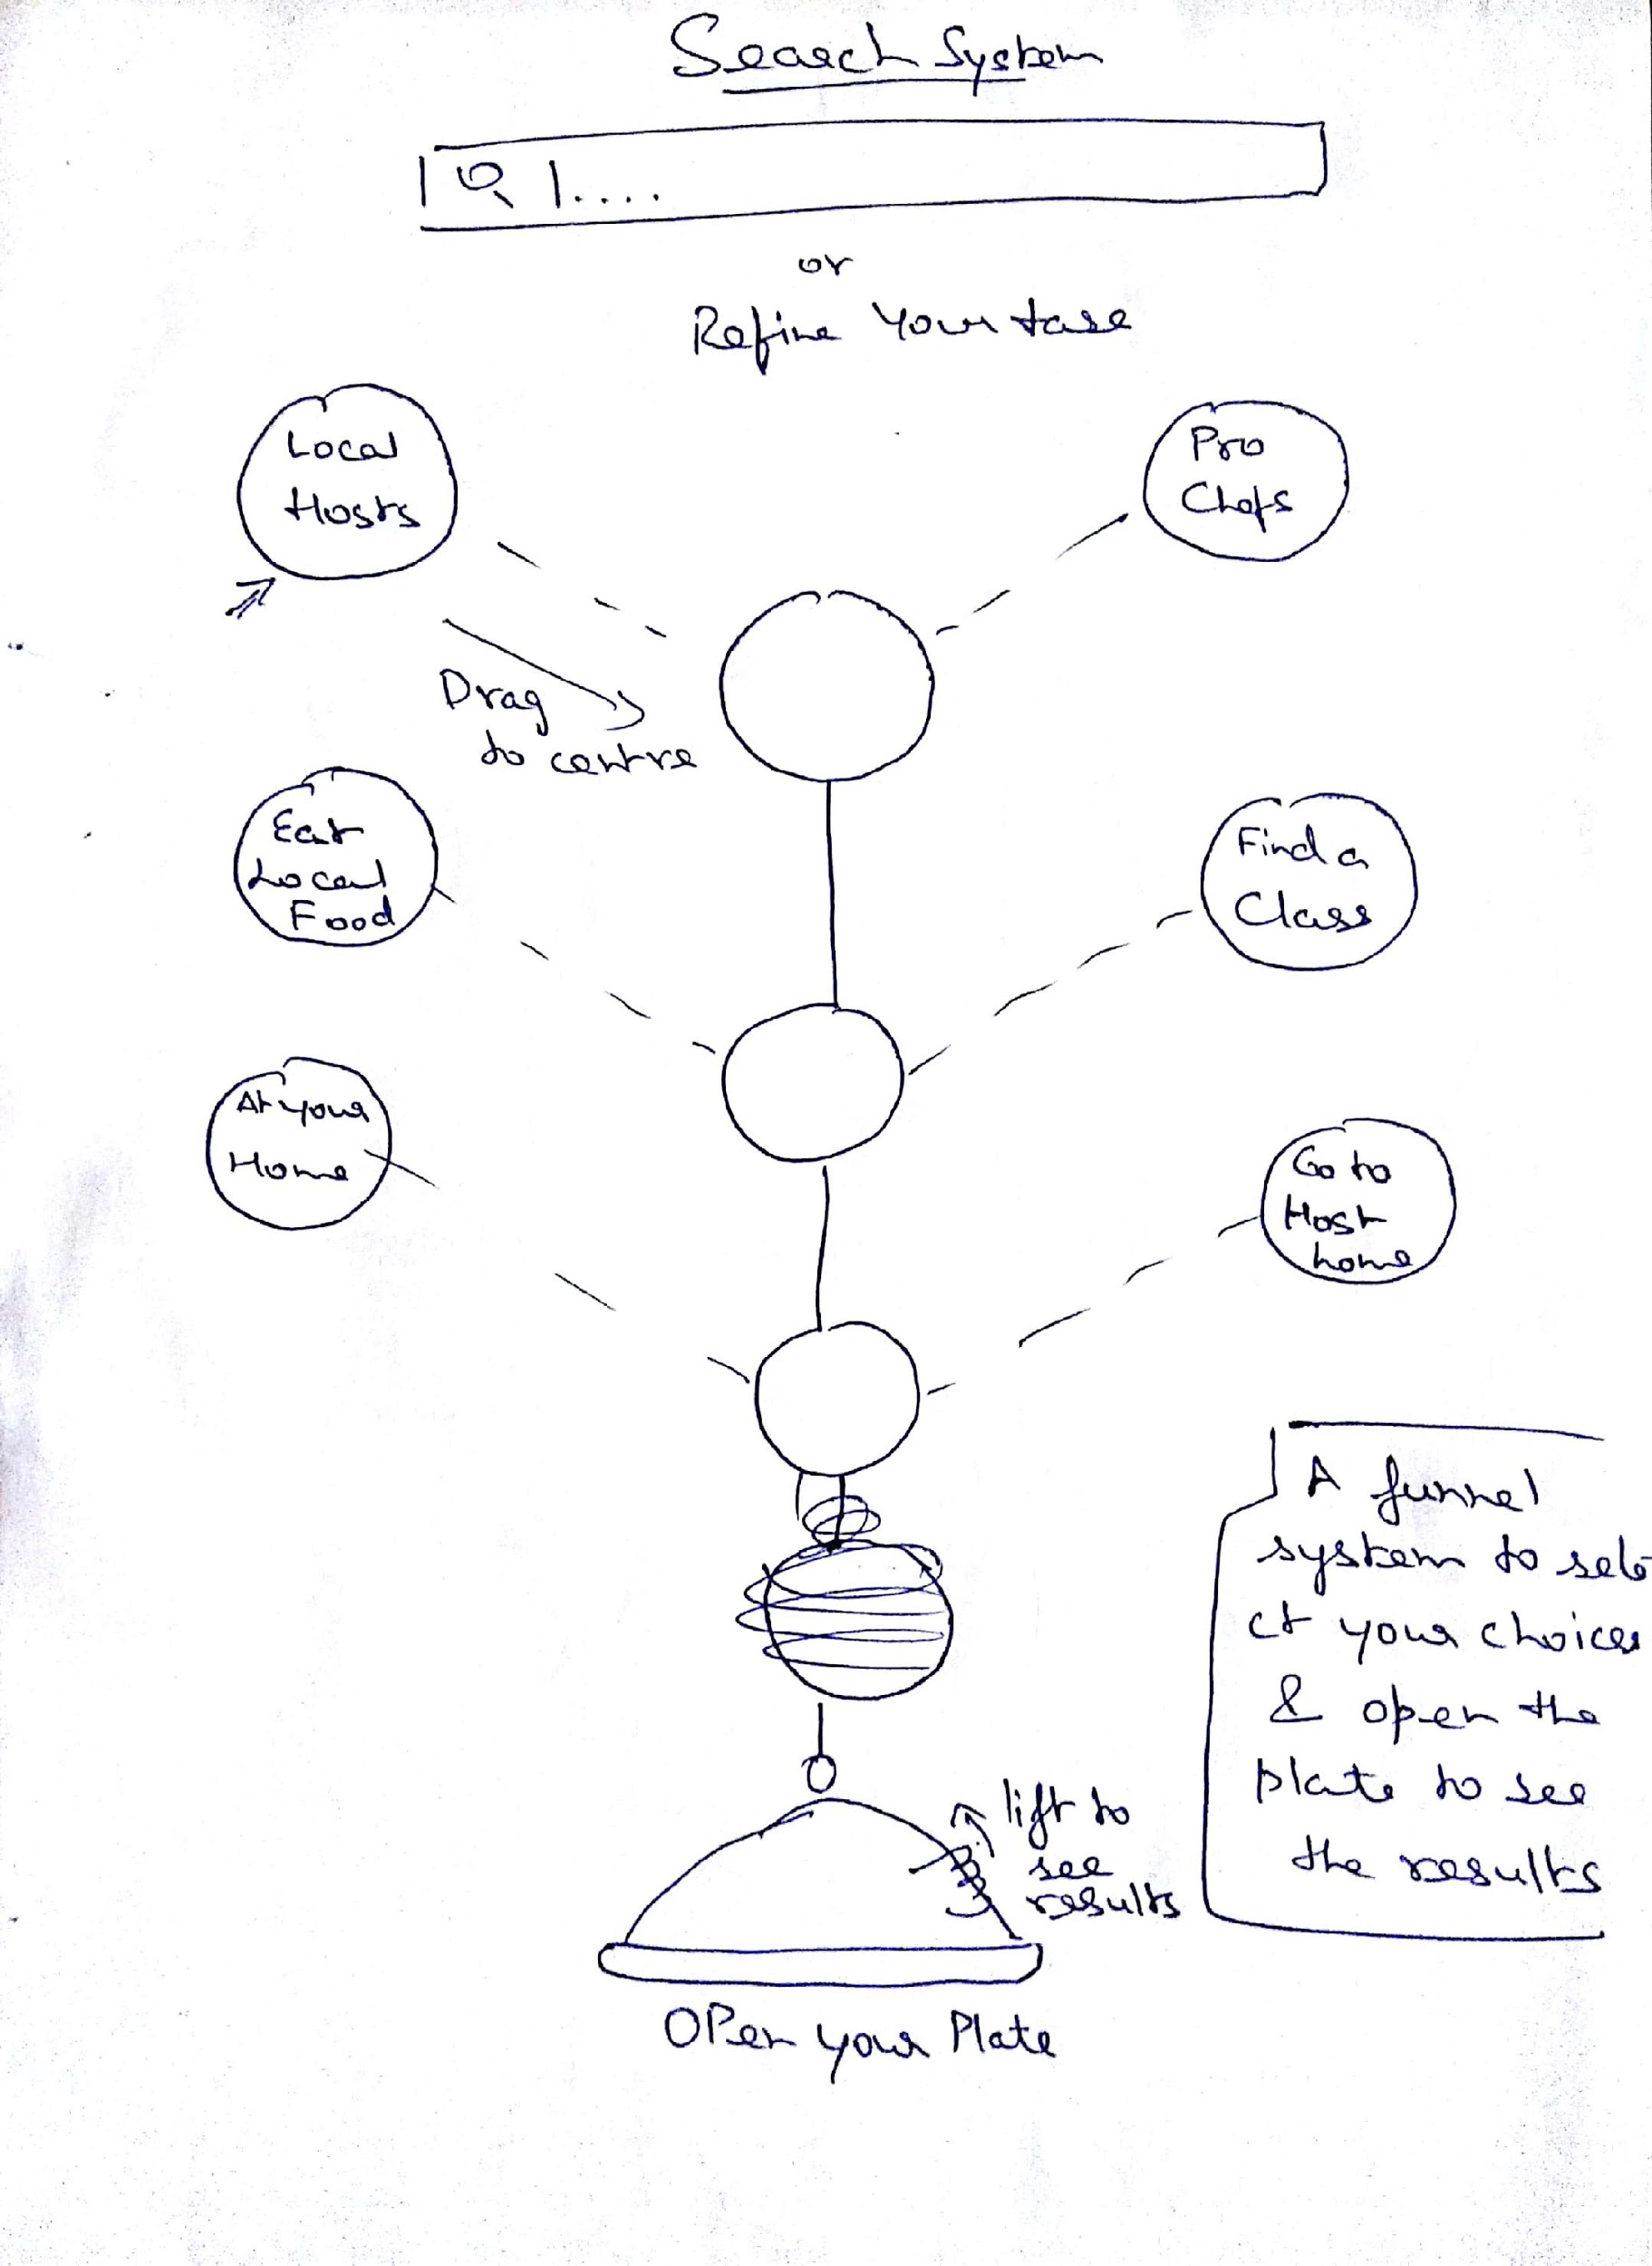 Search System
or
Refine Your tase
Local
Hosts
Pro
Chefs
Drag
to centre
Eat
Local
Food
Find a
Class
At your
Home
Go to
Host
home
A funnel
system to sele
ct your choices
& open the
plate to see
the results
lift to
see
results
OPen your Plate